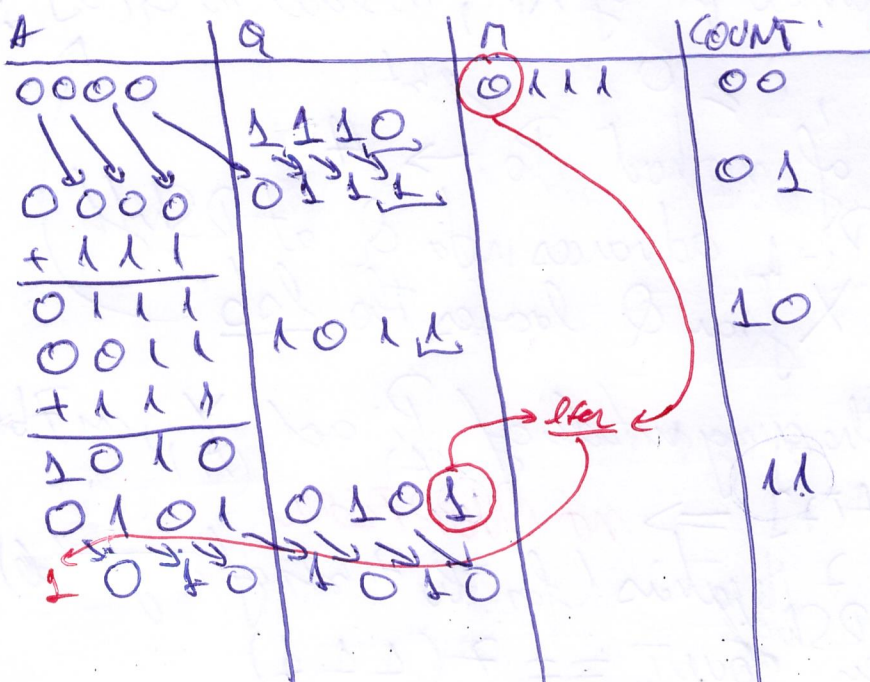 A Q M COUNT
0000 0111 00
1110
01
0000 0111
+111
0111
10
0011 1011
+111
1010
11
0101 0101
1 010 1010